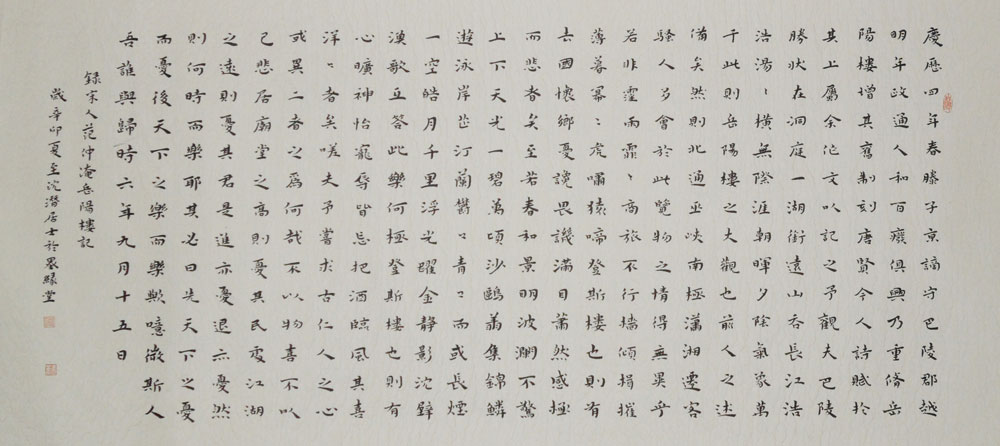 慶曆四年春滕子京謫守巴陵郡越
明年政通人和百廢俱興乃重脩岳
陽樓增其舊制刻唐賢今人詩賦於
其上屬余作文以記之予觀夫巴陵
勝狀在洞庭一湖銜遠山吞長江浩
浩湯〻橫無際涯朝暉夕陰氣象萬
千此則岳陽樓之大觀也前人之述
備矣然則北通巫峽南極瀟湘遷客
騷人多會於此覽物之情得無異乎
若非霪雨霏〻商旅不行檣傾楫摧
薄暮冥〻虎嘯猿啼登斯樓也則有
去國懷鄉憂讒畏譏滿目蕭然感極
而悲者矣至若春和景明波瀾不驚
上下天光一碧萬頃沙鷗翔集錦鱗
遊泳岸芷汀蘭鬱〻青〻而或長煙
一空皓月千里浮光躍金靜影沈璧
漁歌互答此樂何極登斯樓也則有
心曠神怡寵辱皆忘把酒臨風其喜
洋〻者矣嗟夫予嘗求古仁人之心
或異二者之為何哉不以物喜不以
己悲居廟堂之高則憂其民處江湖
之遠則憂其君是進亦憂退亦憂然
則何時而樂耶其必曰先天下之憂
而憂後天下之樂而樂歟噫微斯人
吾誰與歸時六年九月十五日
錄宋人范仲淹岳陽樓記
歲辛卯夏至沱潛居士於墨緣堂